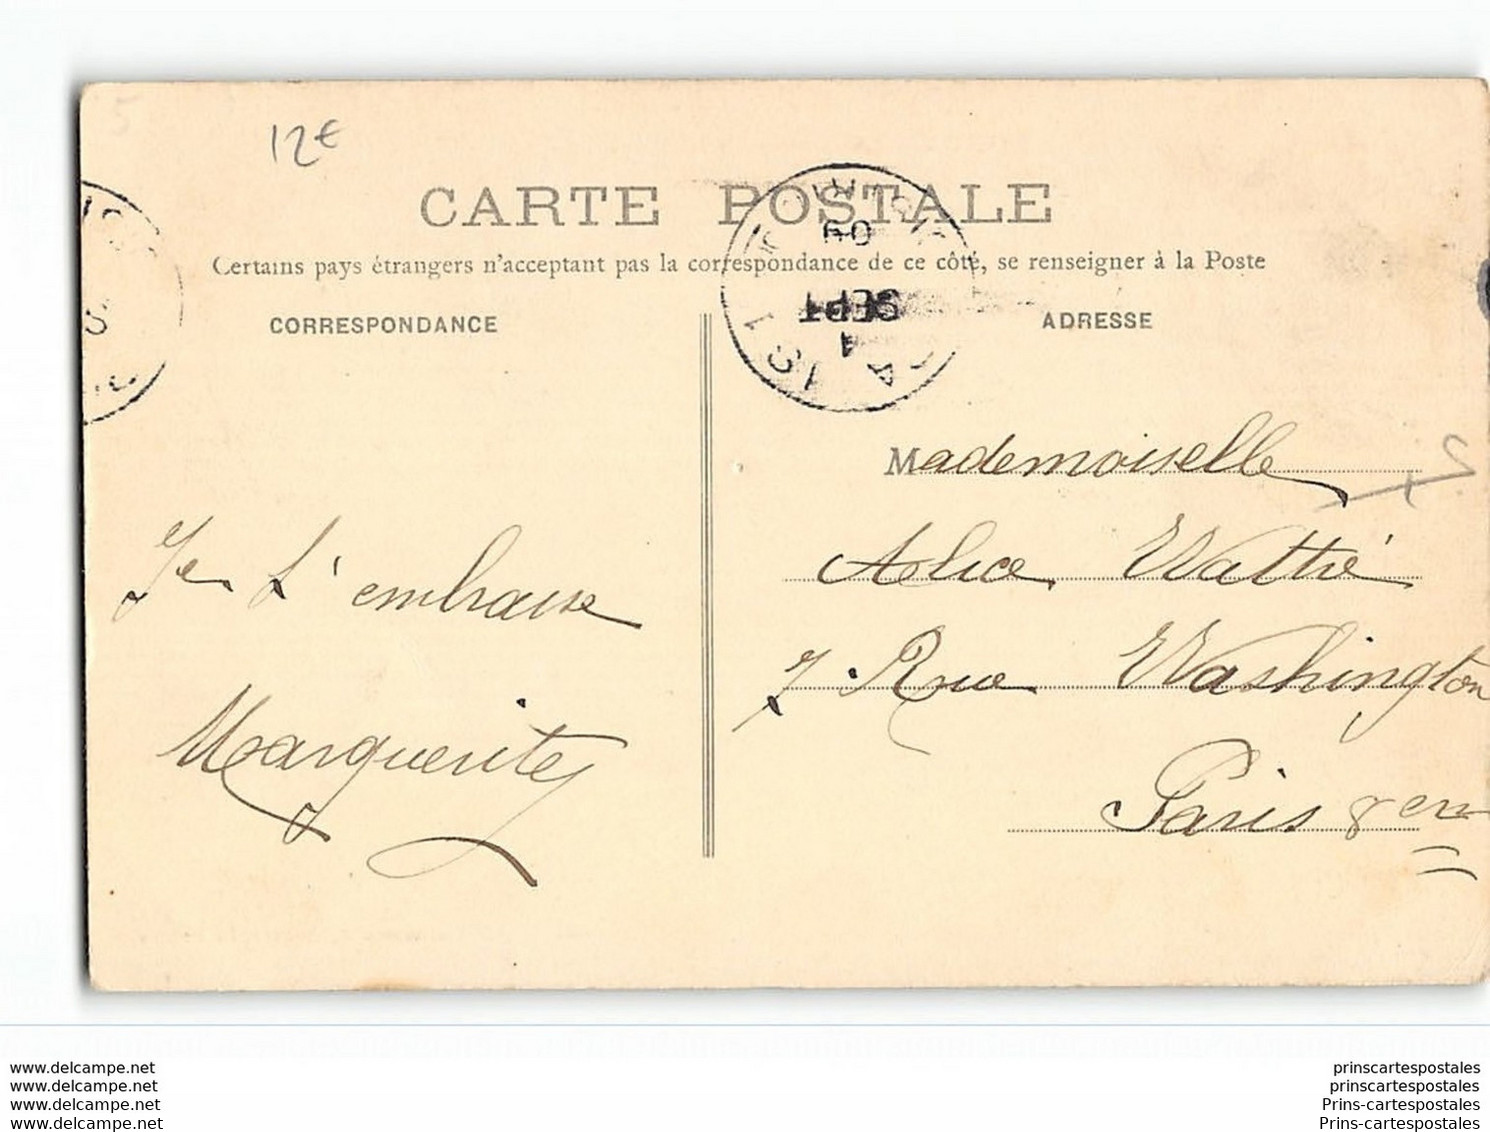 12€
CARTE POSTALE
Certains pays étrangers n'acceptant pas la correspondance de ce côté, se renseigner à la Poste
CORRESPONDANCE
ADRESSE
09
SEPT
Mademoiselle
Alice Wattié
7 Rue Washington
Paris 8em
Je t'embrasse
Marguerite
www.delcampe.net
www.delcampe.net
www.delcampe.net
www.delcampe.net
prinscartespostales
prinscartespostales
Prins-cartespostales
Prins-cartespostales